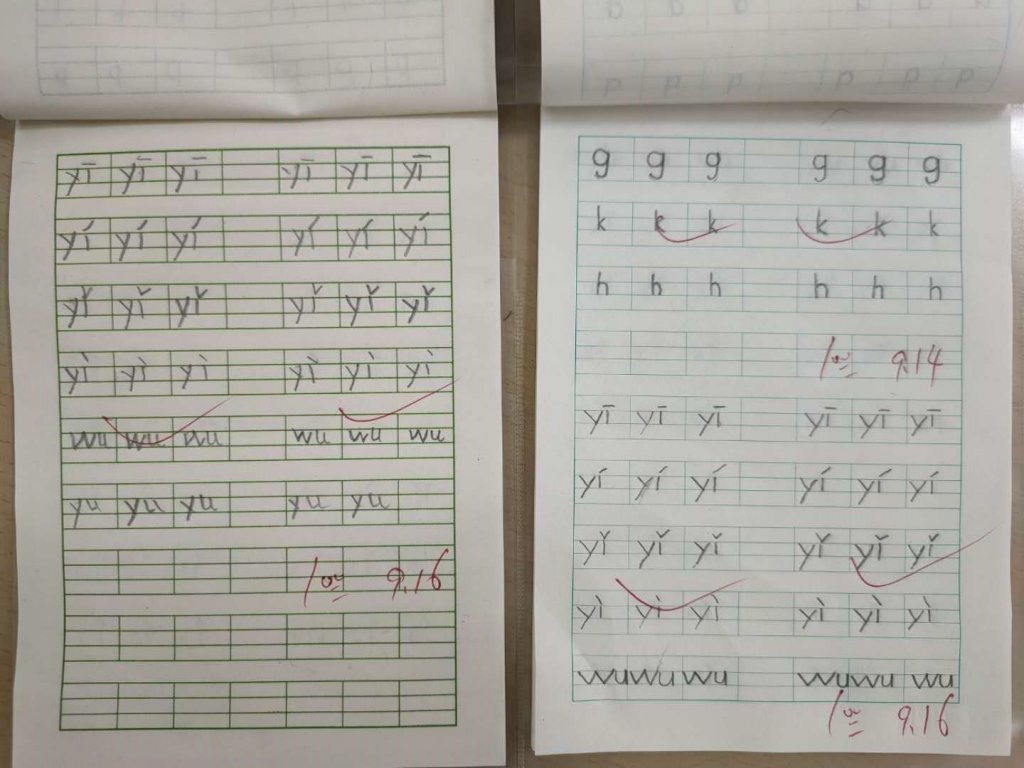 yī yī yī yī yī yī
yí yí yí yí yí yí
yǐ yǐ yǐ yǐ yǐ yǐ
yì yì yì yì yì yì
wu wu wu wu wu wu
yu yu yu yu yu
100 9.16
g g g g g g
k k k k k k
h h h h h h
100 9.14
yī yī yī yī yī yī
yí yí yí yí yí yí
yǐ yǐ yǐ yǐ yǐ yǐ
yì yì yì yì yì yì
wu wu wu wu wu wu
100 9.16